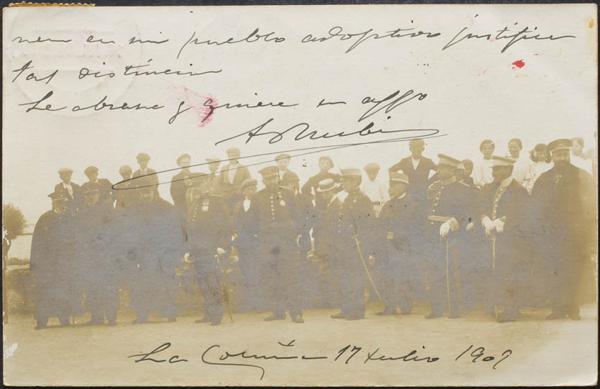 nen en mi pueblo adoptivo justifica
tal distinción
Le abraza y quiere su affº
A Rubi
La Coruña 17 Julio 1907